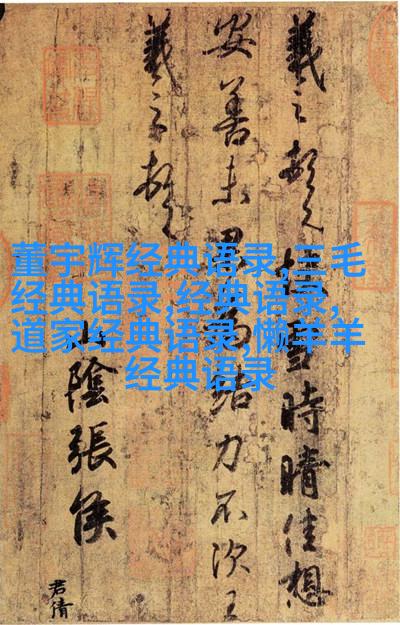 董宇辉经典语录,三毛
经典语录,经典语录,
道家经典语录,懒羊羊
经典语录
羲之頓首雪時晴佳想
安善未果為結力不次王
羲之頓首
山陰張侯
君倩